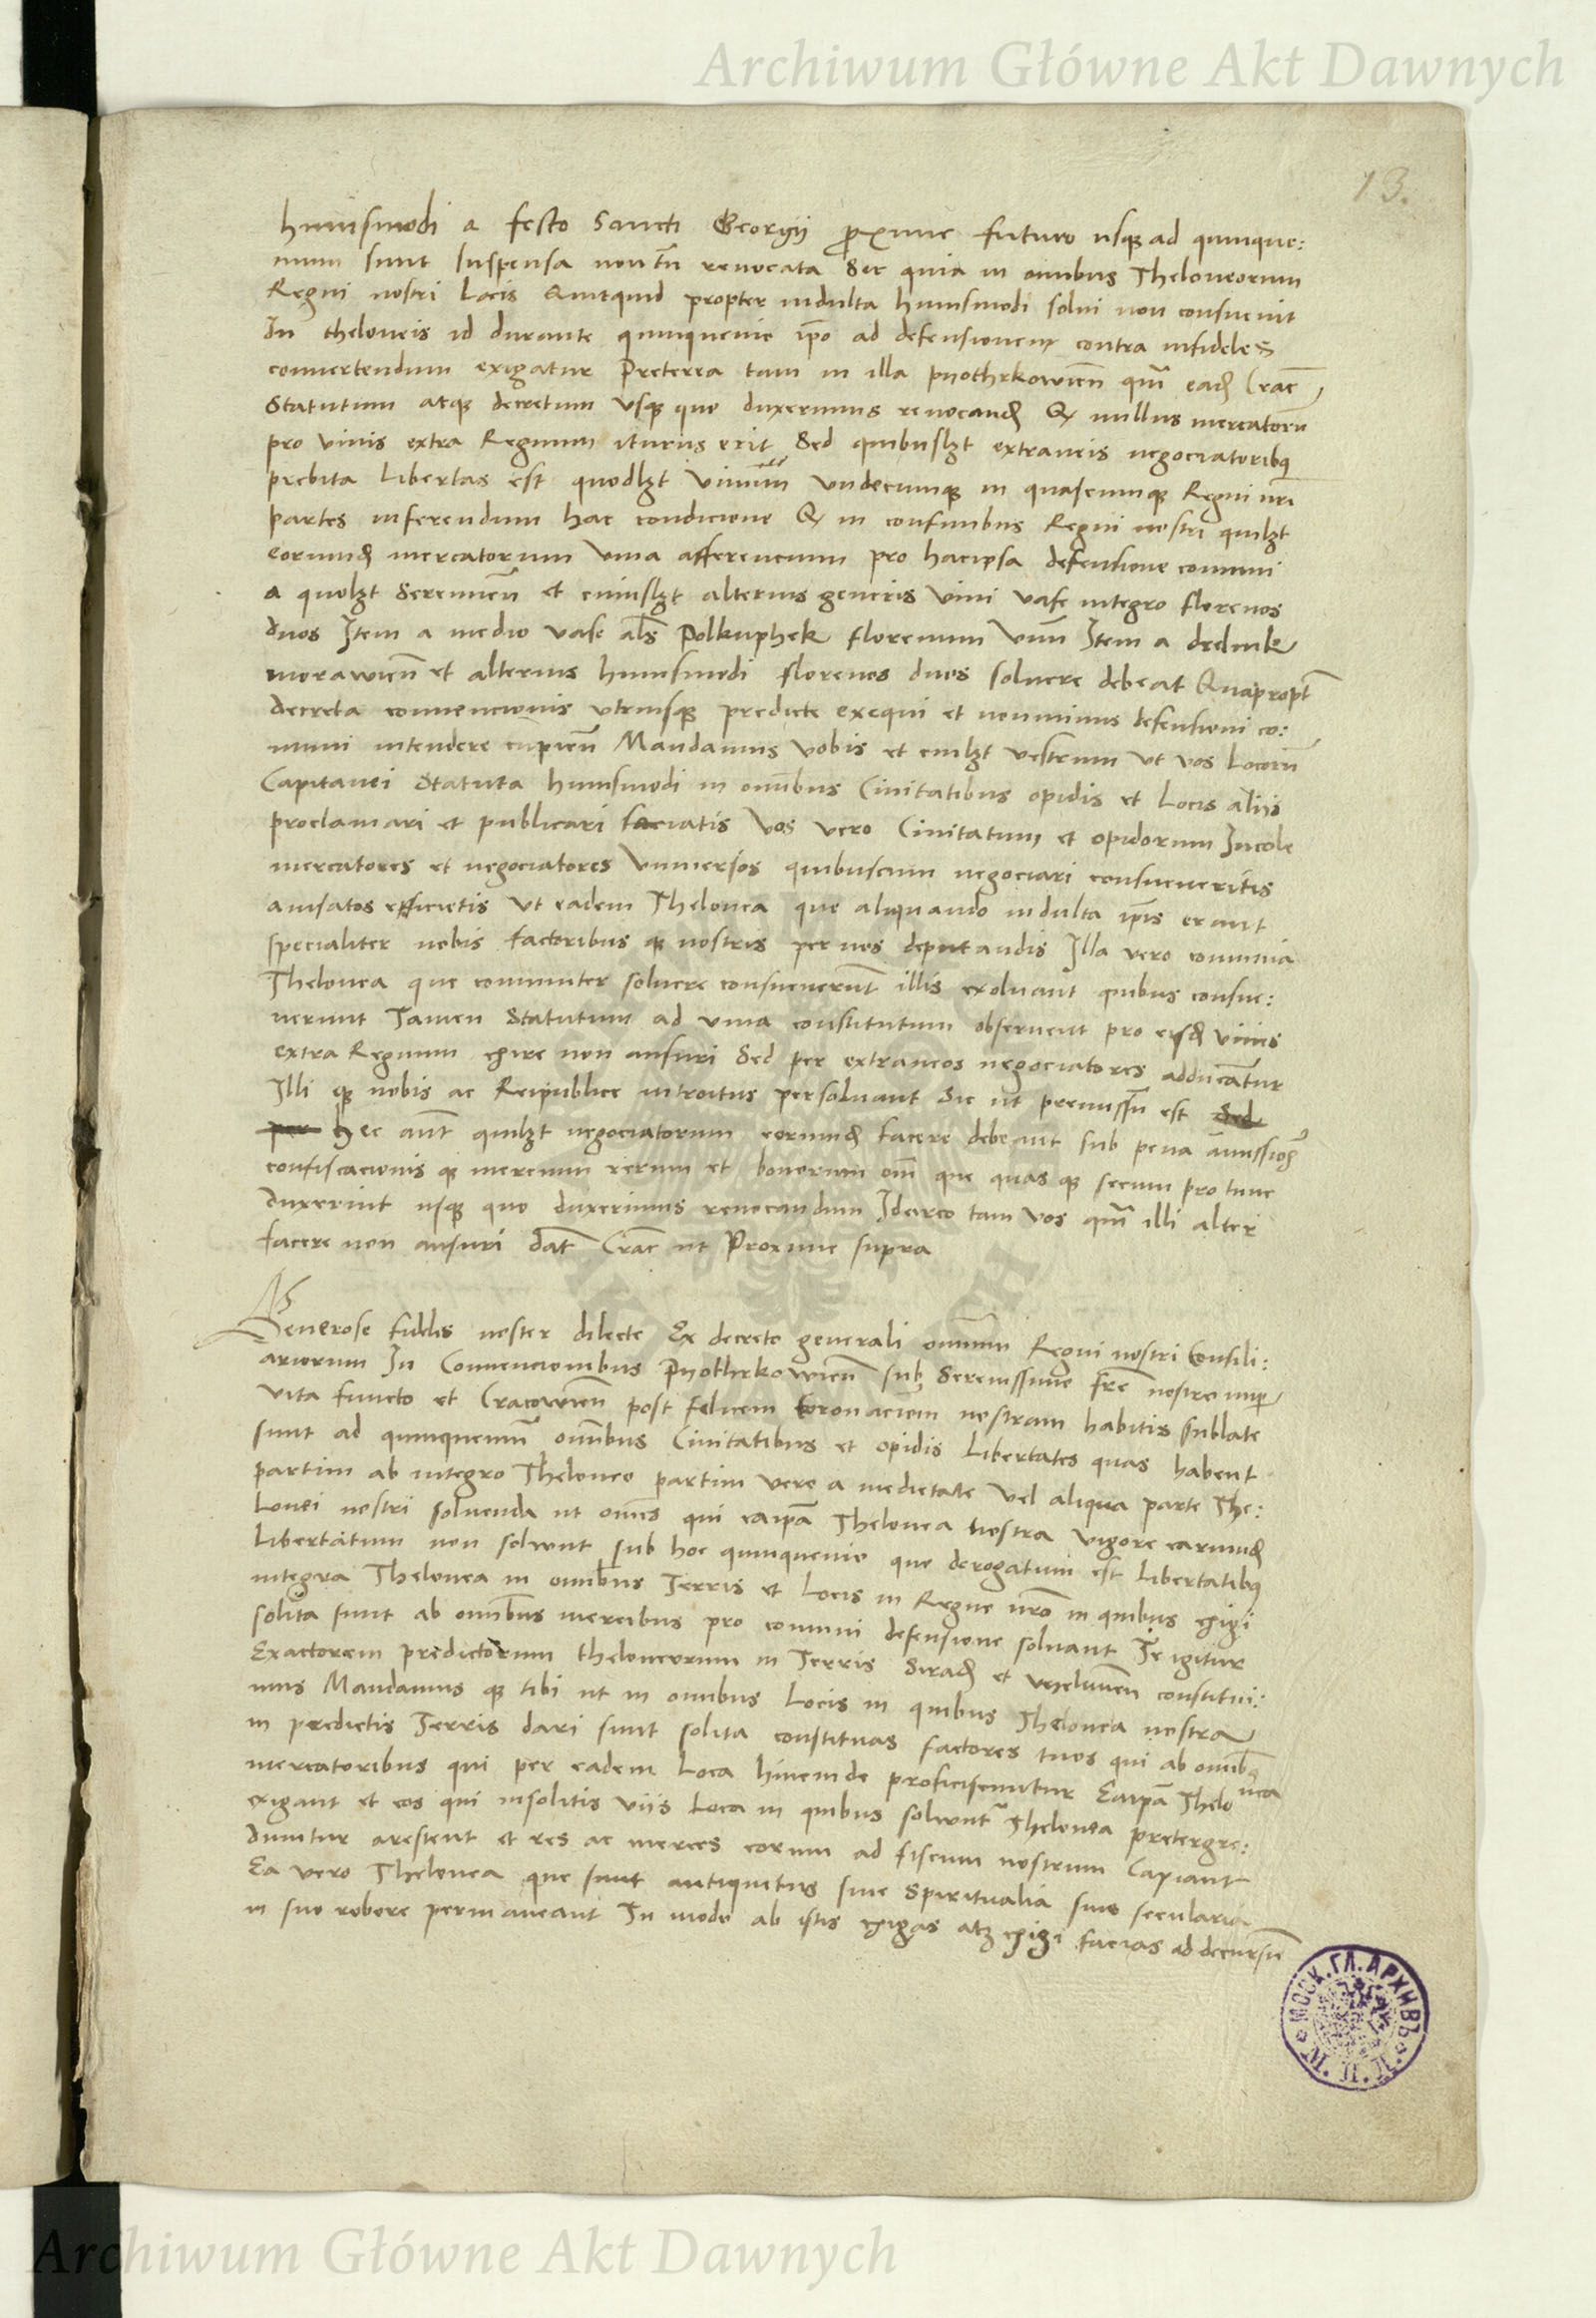 Archiwum Główne Akt Dawnych
13.
huiusmodi a festo Sancti Georgii proxime futuro usque ad quinque:
nium sunt suspensa non tn revocata Sic quia in omnibus Theloneorum
Regni nostri Locis Quitquid propter indulta huiusmodi solui non consuevit
In theloneis id durante quinquenio ipso ad defensionem contra infideles
convertendum exigatur Preterea tam in illa pyothrkowien qm eadem Crac
Statutum atque decretum Usque quo duxerimus revocandum Quod nullus mercatorum
pro vinis extra Regnum iturus erit Sed quibuslzt extraneis negociatoribus
prebita Libertas est quodlzt Vinum Undecumque in quascumque Regni nri
partes inferendum hac condicione Quod in confinibus Regni nostri quilzt
eorundem mercatorum vina afferencium pro hac ipsa defensione communi
a quolzt Seremien et cuiuslzt alterius generis Vini vase integro florenos
duos Item a medio vase als Polkuphek florenum Unum Item a drelink
morawien et alterius huiusmodi florenos duos soluere debeat Quapropt
decreta convencionis utriusque predicte exequi et nonminus defensioni co:
muni intendere cupien Mandamus vobis et cuilzt vestrum Ut vos Locorum
Capitanei Statuta huiusmodi in omnibus Civitatibus opidis et Locis aliis
proclamari et publicari faciatis Vos vero Civitatum et opidorum Incole
mercatores et negociatores Universos quibuscum negociari consueveritis
avisatos efficietis Ut eadem Thelonea que aliquando indulta ipsis erant
specialiter nobis factoribus que nostris per nos deputandis Illa vero communia
Thelonea que communiter soluere consueverunt illis exoluant quibus consue:
verunt Tamen Statutum ad vina constitutum observent pro eisdem vinis
extra Regnum exire non ausuri Sed per extraneos negociatores adducantur
Illi que nobis ac Reipublice introitus persoluant Sic ut premissum est Sed
per Hec aut quilzt negociatorum eorundem facere debeant sub pena amissionis
confiscacionis que mercium rerum et bonorum om que quas que secum pro tunc
duxerint usque quo duxerimus revocandum Idcirco tam vos qm illi aliter
facere non ausuri Dat Crac ut Proxime supra
Generose fidelis noster dilecte Ex decreto generali omnium Regni nostri Consili:
ariorum In Convencionibus Pyothrkowien sub Serenissimo fre nostro nuper
vita functo et Cracowien post felicem coronaciem nostram habitis sublate
sunt ad quinquenium omnibus Civitatibus et opidis Libertates quas habent
partim ab integro Theloneo partim vero a medietate vel aliqua parte The:
lonei nostri soluenda ut omnes qui eaipsa Thelonea nostra vigore earundem
Libertatum non soluunt sub hoc quinquenio quo derogatum est Libertatibus
integra Thelonea in omnibus Terris et Locis in Regno nro in quibus exigi
solita sunt ab omnibus mercibus pro communi defensione soluant Te igitur
Exactorem predictorum theloneorum in Terris Siradien et Vyelunen constitui:
mus Mandamus que tibi ut in omnibus Locis in quibus Thelonea nostra
in predictis Terris dari sunt solita constituas factores tuos qui ab omnibus
mercatoribus qui per eadem Loca hincinde proficiscuntur Eaipsa Thelonea
exigant et eos qui insolitis viis Loca in quibus soluuntur Thelonea pretergre:
diuntur arestent et res ac merces eorum ad fiscum nostrum Capiant
Ea vero Thelonea que sunt antiquitus sive Spiritualia sive secularia
in suo robore permaneant In modo ab istis exigas atque exigi facias ad decursum
МОСК. ГЛ. АРХИВЪ
Archiwum Główne Akt Dawnych